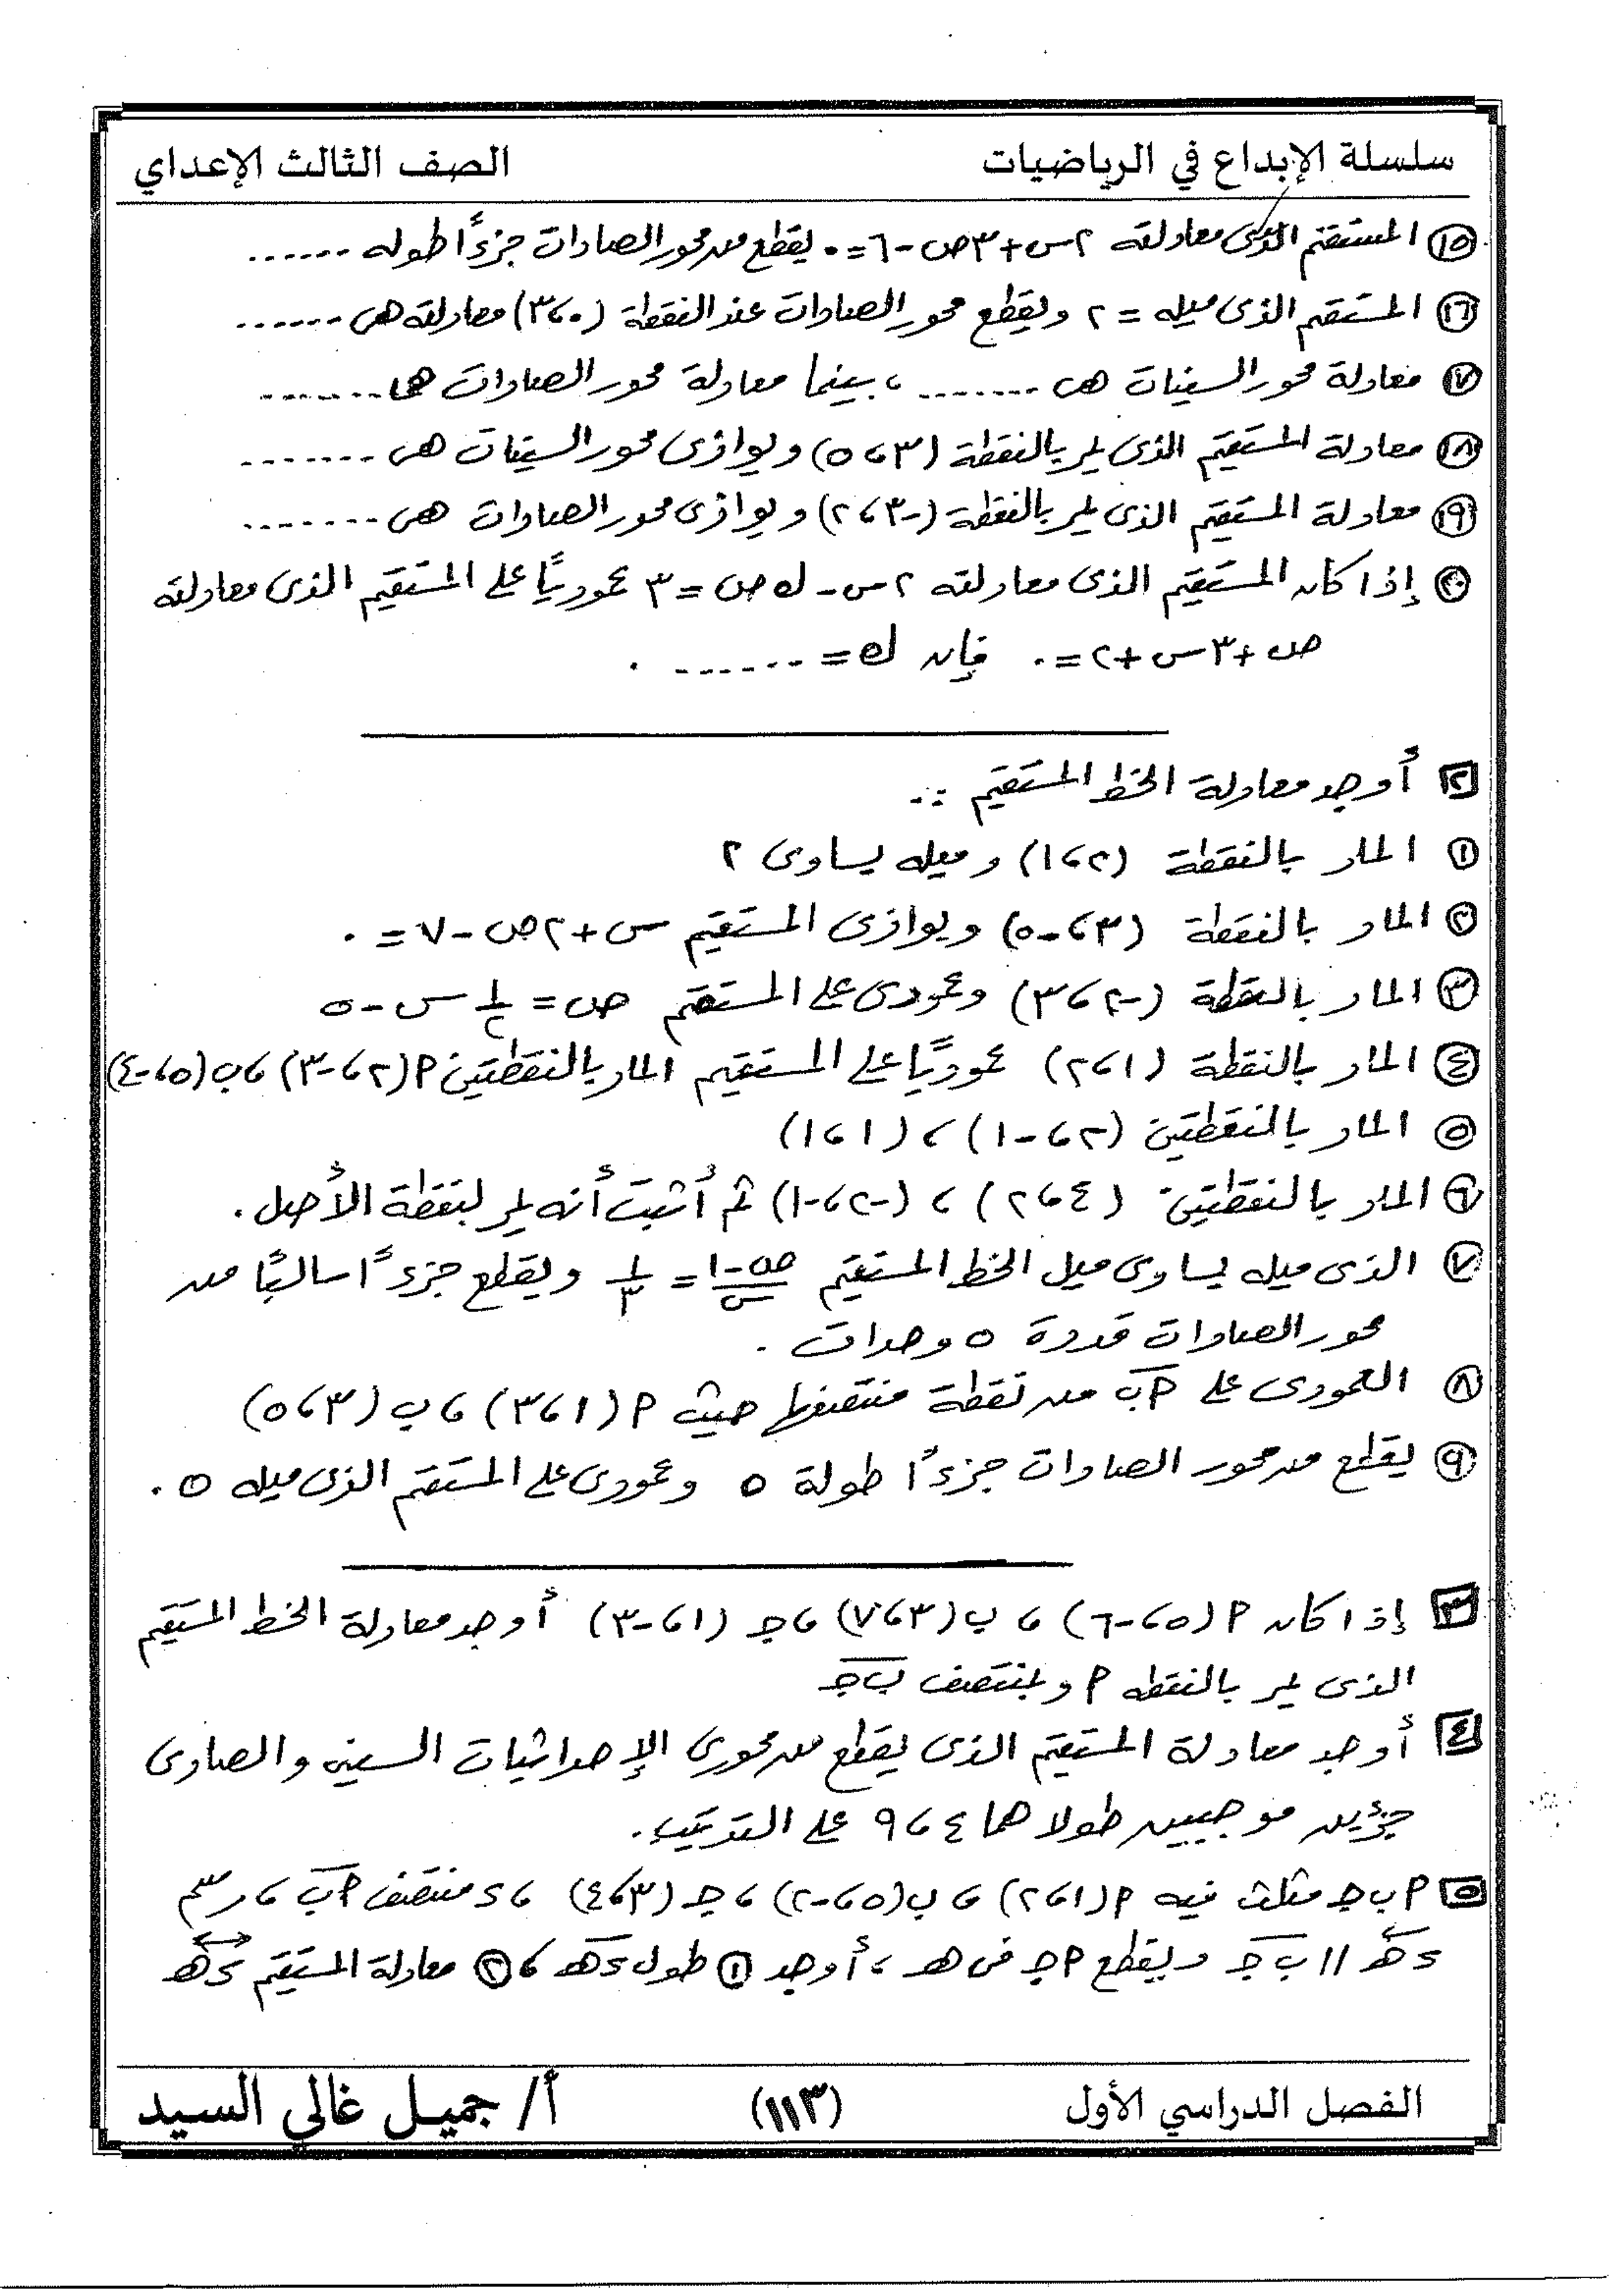 سلسلة الإبداع في الرياضيات
الصف الثالث الإعداي
١٥ المستقيم الذى معادلته ٢س+٣ص-٦=٠ يقطع من محور الصادات جزءًا طوله ......
١٦ المستقيم الذى ميله = ٢ ويقطع محور الصادات عند النقطة (٠،٣) معادلته هى ......
١٧ معادلة محور السينات هى ....... ، بينما معادلة محور الصادات هما .......
١٨ معادلة المستقيم الذى يمر بالنقطة (٣،٥) ويوازى محور السينات هى .......
١٩ معادلة المستقيم الذى يمر بالنقطة (-٣،٢) ويوازى محور الصادات هى .......
٢٠ إذا كان المستقيم الذى معادلته ٢س-ك ص=٣ عموديًا على المستقيم الذى معادلته
ص+٣س+٢=٠ فإن ك=...... .
٢ أوجد معادلة الخط المستقيم :.
١ المار بالنقطة (٢،١) وميله يساوى ٢
٢ المار بالنقطة (٣،-٥) ويوازى المستقيم س+٢ص-٧=٠
٣ المار بالنقطة (-٢،٣) وعمودى على المستقيم ص=١/٢ س-٥
٤ المار بالنقطة (١،٢) عموديًا على المستقيم المار بالنقطتين ٩(٢،-٣)، ب(٥،-٤)
٥ المار بالنقطتين (٢،-١)، (١،١)
٦ المار بالنقطتين (٤،٢)، (-٢،-١) ثم أثبت أنه يمر بنقطة الأصل.
٧ الذى ميله يساوى ميل الخط المستقيم ص-١/س=١/٣ ويقطع جزءًا سالبًا من
محور الصادات قدرة ٥ وحدات .
٨ العمودى على ٩ب من نقطة منتصفها حيث ٩(١،٣)، ب(٣،٥)
٩ يقطع من محور الصادات جزءًا طولة ٥ وعمودى على المستقيم الذى ميله ٥ .
٣ إذا كان ٩(٥،-٦)، ب(٣،٧)، جـ(١،-٣) أوجد معادلة الخط المستقيم
الذى يمر بالنقطه ٩ وبمنتصف ب جـ
٤ أوجد معادلة المستقيم الذى يقطع من محورى الإحداثيات السينى والصادى
جزئين موجبين طولاهما ٤،٩ على الترتيب.
٥ ٩ب جـ مثلث فيه ٩(١،٢)، ب(٥،-٢)، جـ(٣،٤)، ء منتصف ٩ب، رسم
ءهـ // ب جـ ويقطع ٩جـ فى هـ، أوجد ١ طول ءهـ، ٢ معادلة المستقيم ءهـ
الفصل الدراسي الأول
(١١٣)
أ/ جميل غالي السيد